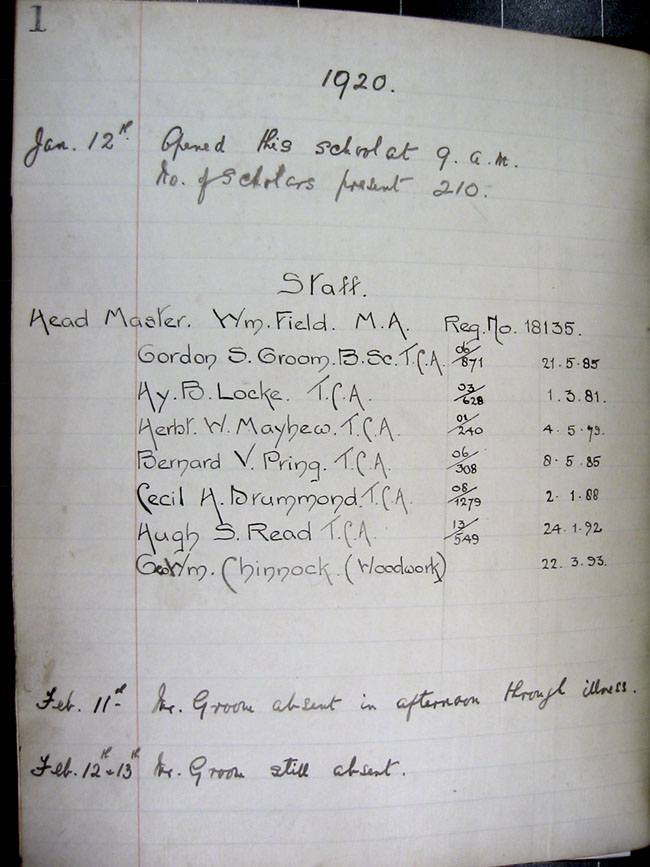 1
1920.
Jan. 12th Opened this school at 9. a.m.
No. of Scholars present 210.
Staff.
Head Master. Wm. Field. M.A. Reg. No. 18135.
Gordon S. Groom. B.Sc. T.C.A. 06/871 21.5.85
Hy. B. Locke. T.C.A. 03/628 1.3.81.
Herbt. W. Mayhew. T.C.A. 01/240 4.5.79.
Bernard V. Pring. T.C.A. 06/308 8.5.85
Cecil H. Drummond. T.C.A. 08/1279 2.1.88
Hugh S. Read T.C.A. 13/549 24.1.92
Wm. Chinnock. (Woodwork) 22.3.93.
Feb. 11th Mr. Groom absent in afternoon through illness.
Feb. 12th + 13th Mr. Groom still absent.